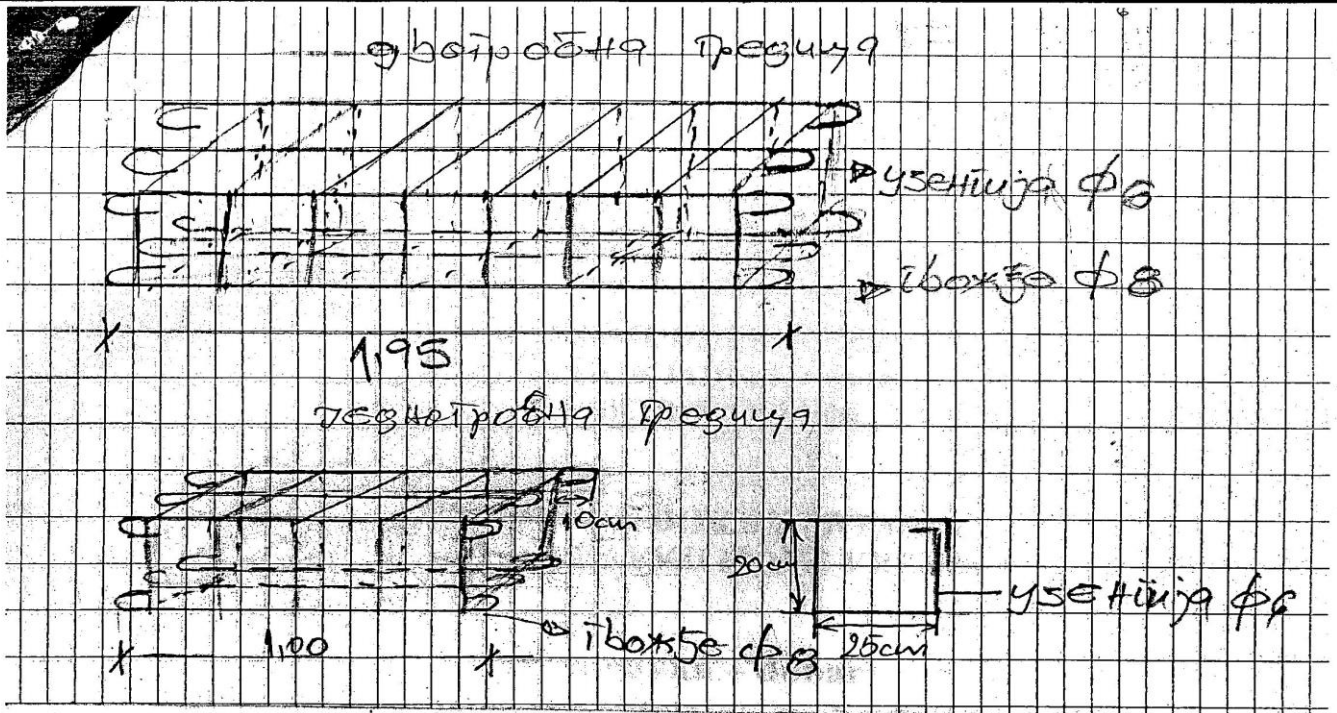 двогробна гредица
узенгија ф6
гвожђе ф8
1,95
једногробна гредица
10cm
20cm
узенгија ф6
1,00
гвожђе ф8
25cm